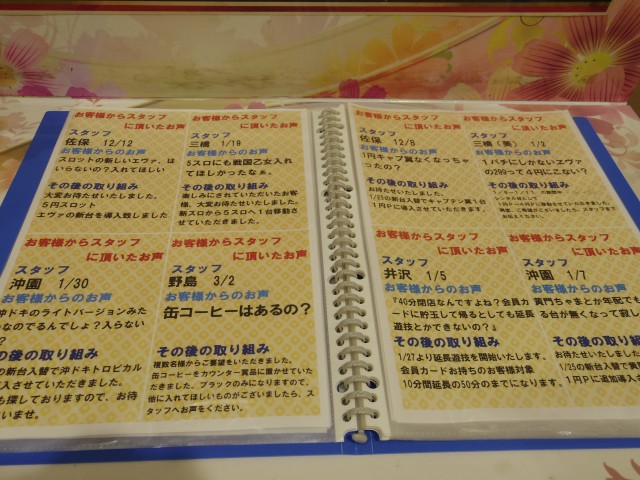 お客様からスタッフ
に頂いたお声
スタッフ
佐保 12/12
お客様からのお声
スロットの新しいエヴァ、は
いらないの?入れてほしい
その後の取り組み
大変お待たせいたしました。
5円スロット
エヴァの新台を導入致しました
お客様からスタッフ
に頂いたお声
スタッフ
三橋 1/19
お客様からのお声
5スロにも戦国乙女入れ
てほしかったなぁ。
その後の取り組み
楽しみにされていただいたお客
様、大変お待たせいたしました。
新スロから5スロへ1台移動さ
せていただきます。
お客様からスタッフ
に頂いたお声
スタッフ
沖園 1/30
お客様からのお声
沖ドキのライトバージョンみた
なのでるんでしょ?入らない
?
その後の取り組み
の新台入替で沖ドキトロピカル
入させていただきました。
も探しておりますので、お待
いませ。
お客様からスタッフ
に頂いたお声
スタッフ
野島 3/2
お客様からのお声
缶コーヒーはあるの?
その後の取り組み
複数名様からご要望をいただきました。
缶コーヒーをカウンター賞品に置かせていた
だきました。ブラックのみになりますので、
他に入れてほしいものがございましたら、ス
タッフへお声をください。
お客様からスタッフ
に頂いたお声
スタッフ
佐保 12/8
お客様からのお声
1円キャプ翼なくなっちゃ
ったの?
その後の取り組み
お待たせいたしました。
1/25の新台入替でキャプテン翼1台
1円Pに導入させていただきます。
お客様からスタッフ
に頂いたお声
スタッフ
三橋(美) 1/2
お客様からのお声
1パチにしかないエヴァ
の299って4円にこない?
その後の取り組み
お客様からスタッフ
に頂いたお声
スタッフ
井沢 1/5
お客様からのお声
『40分閉店なんですよね?会員カー
ドに貯玉して帰るとしても延長
遊技とかできないの?』
その後の取り組み
1/27より延長遊技を開始いたします。
会員カードお持ちのお客様対象
10分間延長の50分のまでになります。
お客様からスタッフ
に頂いたお声
スタッフ
沖園 1/7
お客様からのお声
黄門ちゃまとか年配でも
る台が無くなって寂し
その後の取り組み
お待たせいたしま
1/25の新台入替で黄
1円Pに追加導入